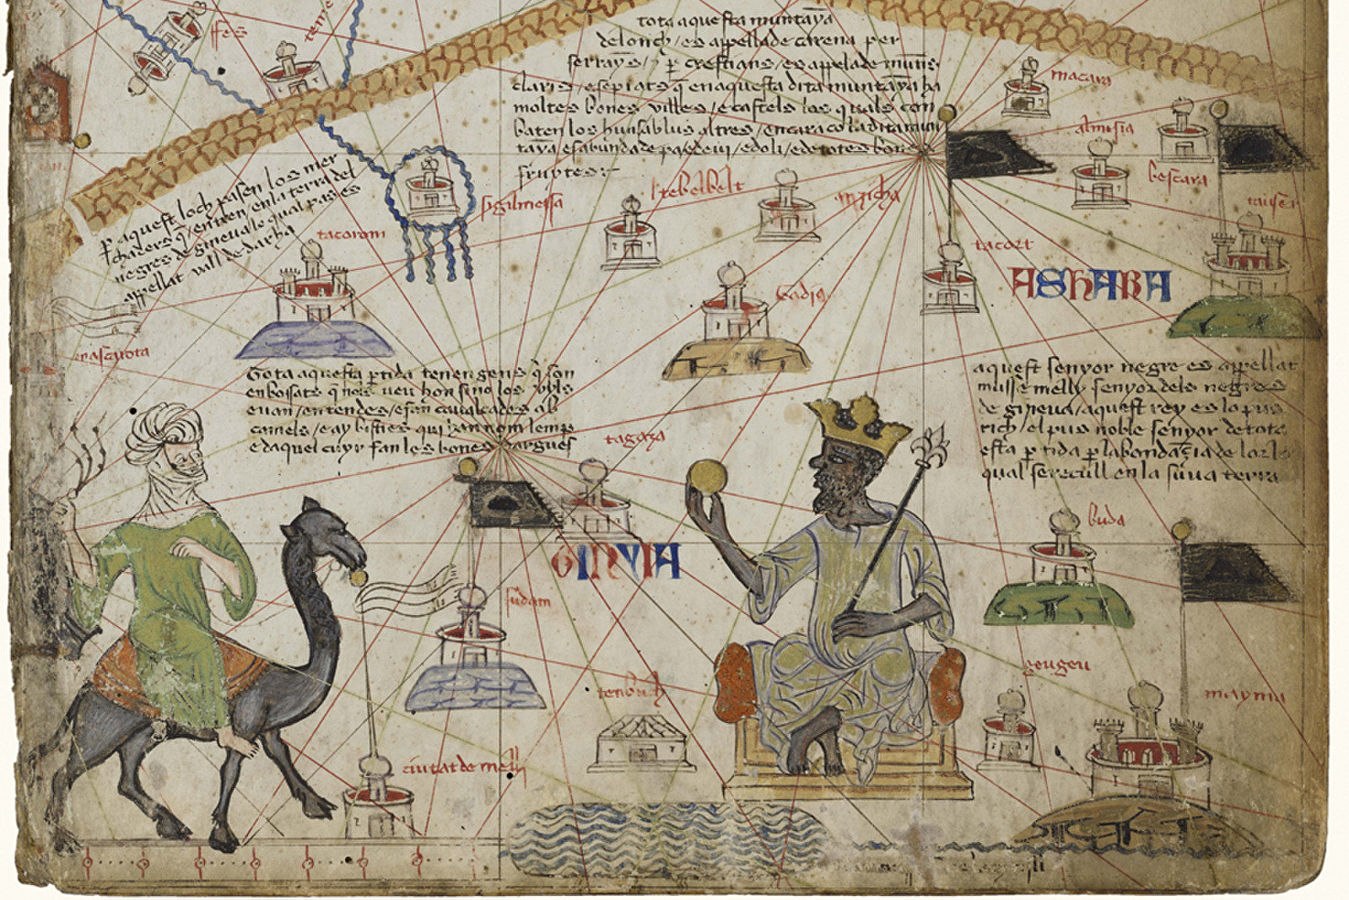 fes
tota aquesta muntaya
de lonch / es appellade carena per
serrayns / & per crestians / es appelade muntis
claris / e sepiats q̄ en aquesta dita muntaya ha
moltes bones villes / e castels los quals con
baten los huns ab lus altres / encara com la dita mun
taya es abunda de pa e de vi / e doli / e de totes bones
fruytes
macara
almisia
bescara
p̄ aquest loch pasen los mer
chaders q̄ / entren / en la terra del
negres de gineva lo qual pas es
appellat vall de darha
sigilmessa
tacorom
tebelbelt
tacort
ASHARA
Tota aquesta p̄tida tenen gens q̄ son
enboſſats q̄ nols veu hom sino los vyls
e van / en tendes / e fan cavalcades ab
camels / e ay bisties qui han nom lemp
e daquel cuyr fan les bones dargues
aquest senyor negre es appellat
musse melly senyor dels negres
de gineva / aquest rey es lo pus
rich / el pus noble senyor de tota
esta p̄tida p̄ labondançia de lor
qual se recull en la suua terra
tagaza
GINYIA
buda
sudam
tenbuch
geugeu
mayma
ciutat de melly